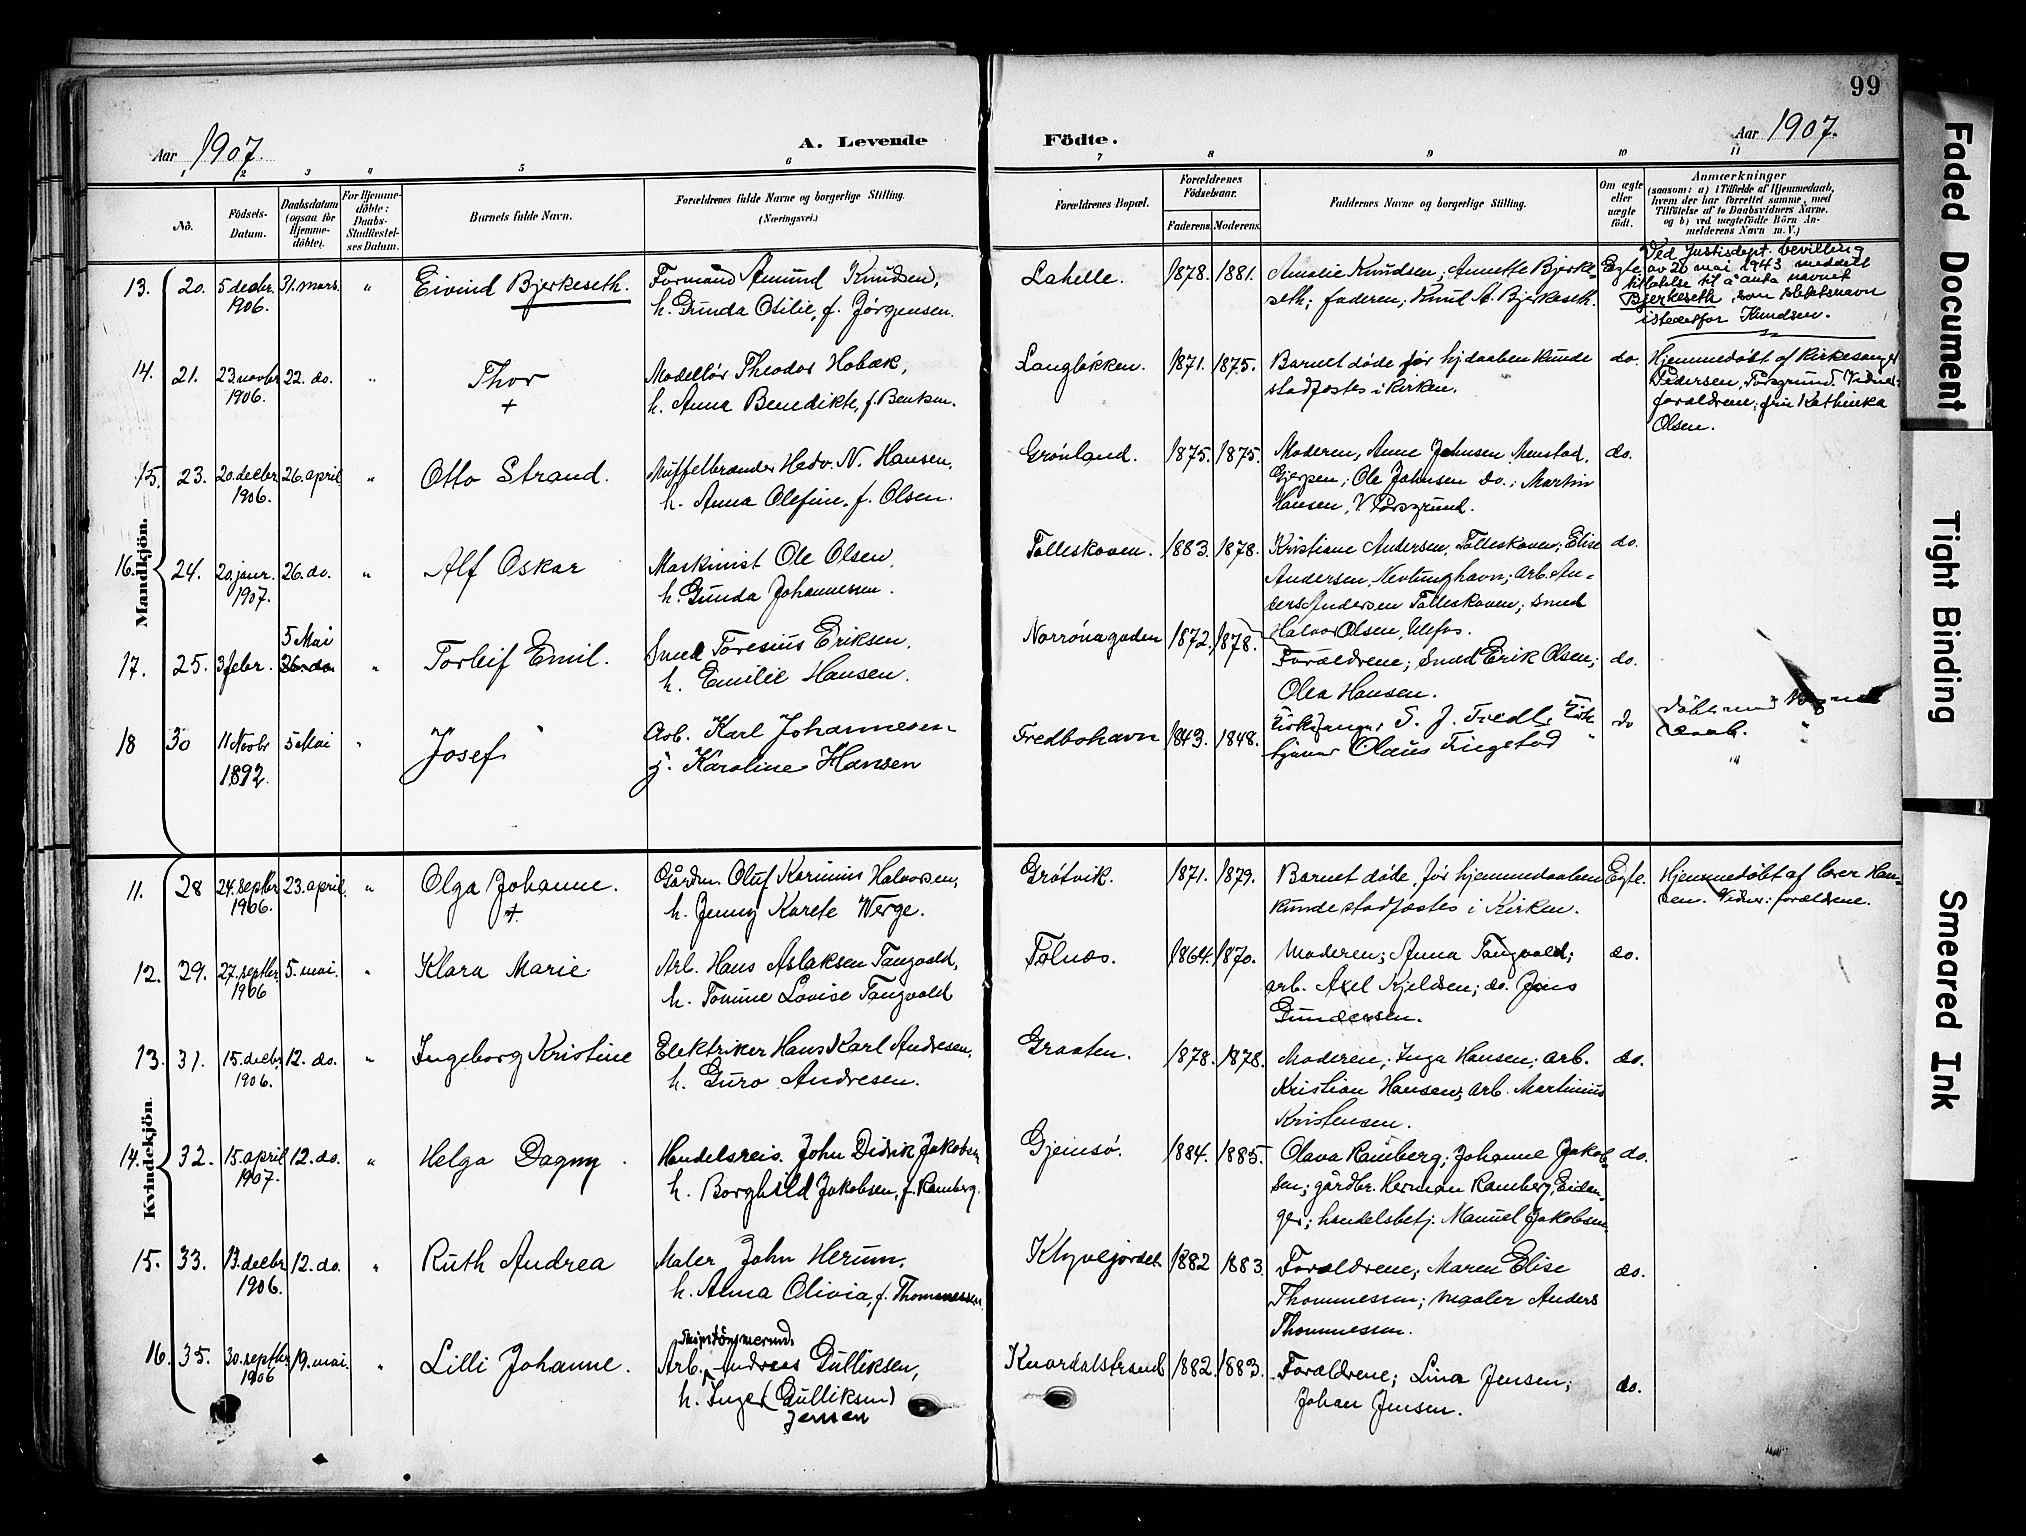 99
Aar 1907.
A. Levende Födte.
Aar 1907.
1 2 3 4 5 6 7 8 9 10 11
No.
Födsels-Datum.
Daabsdatum (ogsaa for Hjemme-döbte).
For Hjemme-döbte: Daabs-Stadfæstel-ses Datum.
Barnets fulde Navn.
Forældrenes fulde Navne og borgerlige Stilling. (Næringsvei.)
Forældrenes Bopæl.
Forældrenes Födselsaar.
Faderens. Moderens.
Faddernes Navne og borgerlige Stilling.
Om ægte eller uægte födt.
Anmærkninger
(saasom: a) i Tilfælde af Hjemmedaab, hvem der har forrettet samme, med Tilföielse af to Daabsvidners Navne, og b) ved uægtefödte Börn An-melderens Navn m. V.)
Mandkjön.
13. 20. 5 decbr. 1906. 31. mars. " Eivind Bjerkeseth.
Formand Amund Knudsen,
h. Gunda Otilie, f. Jørgensen.
Lahelle. 1878. 1881.
Amalie Knudsen; Annette Bjerke-
seth; faderen; Knut A. Bjerkeseth.
Egte
Ved Justisdept. bevilling
av 20 mai 1943 meddelt
tillatelse til å anta navnet
Bjerkeseth som slektsnavn
istedetfor Knudsen.
14. 21. 23. novbr. 1906. 22. do. " Thor +
Modellør Theodor Hobæk,
h. Anna Benedikte, f. Bentsen.
Langløkken. 1871. 1875.
Barnet døde før hjdaaben kunde
stadfæstes i kirken.
do.
Hjemmedøbt af Kirkesanger
Pedersen, Porsgrund. Vidner:
forældrene; frk Kathinka
Olsen.
15. 23. 20. decbr. 1906. 26. april " Otto Strand.
Muffelbrænder Hedv. N. Hansen,
h. Anna Olefine, f. Olsen.
Grønland. 1875. 1875.
Moderen, Anne Johnsen Menstad,
Gjerpen; Ole Johnsen do.; Martin
Hansen, V Porsgrund.
do.
16. 24. 20. januar. 1907. 26. do. " Alf Oskar
Maskinist Ole Olsen,
h. Gunda Johannessen.
Tolleskoven. 1883. 1878.
Kristiane Andersen, Tolleskoven; Elise
Andersen, Nevlunghavn; arb. An-
ders Andersen Tolleskoven; smed
Halvor Olsen, Ulefos.
do.
17. 25. 3 febr. 5 Mai 26. do. " Torleif Emil.
Smed Toresius Eriksen,
h. Emilie Hansen.
Norrønagaden 1872. 1878.
Forældrene; Smed Erik Olsen;
Olea Hansen.
do.
18 30 11 Novbr 1892. 5 Mai " Josef
Arb. Karl Johannesen
g. Karoline Hansen
Fredbohavn 1843. 1848.
Kirkesanger S. J. Tredli Kirke
tjener Olaus Tingstad
do
daab.
Kvindekjön
11. 28 24. septbr. 1906. 23. april. " Olga Johanne. +
Gårdm. Oluf Karinius Halvorsen,
h. Jenny Karete Werge.
Grøtvik. 1871. 1879.
Barnet døde før hjemmedaaben
kunde stadfæstes i Kirken.
Egte.
Hjemmedøbt af lærer Han-
sen. Vidner: forældrene.
12. 29. 27. septbr. 1906 5. mai. " Klara Marie
Arb. Hans Aslaksen Tangvald,
h. Tomine Lovise Tangvald
Folnes. 1864. 1870.
Moderen; Anna Tangvald;
arb. Axel Kjeldsen; do. Jens
Gundersen.
do.
13. 31. 15. decbr. 1906. 12. do. " Ingeborg Kristine
Elektriker Hans Karl Andresen,
h. Guro Andresen.
Graaten. 1878. 1878.
Moderen; Inga Hansen; arb.
Kristian Hansen; arb. Martinius
Kristensen.
do.
14. 32. 15. april 1907. 12. do. " Helga Dagny
Handelsreis. John Didrik Jakobsen
h. Borghild Jakobsen, f. Ramberg.
Gjemsø. 1884. 1885.
Olava Ramberg; Johanne Jakob-
sen; gårdbr. Herman Ramberg, Eidan-
ger; handelsbetj. Manuel Jakobsen.
do.
15. 33. 13. decbr. 1906. 12. do. " Ruth Andrea
Maler John Herum,
h. Alma Olivia, f. Thommessen.
Klyvejordet 1882 1883.
Forældrene; Maren Elise
Thommessen; maler Anders
Thommessen.
do.
16. 35. 30. septbr 1906 19. mai. " Lilli Johanne.
Skipstømmermd.
Arb. Andreas Gulliksen,
h. Inger (Gulliksen)
Jensen
Knardalstrand 1882. 1883.
Forældrene; Lina Jensen;
Johan Jensen.
do.
Faded Document
Tight Binding
Smeared Ink